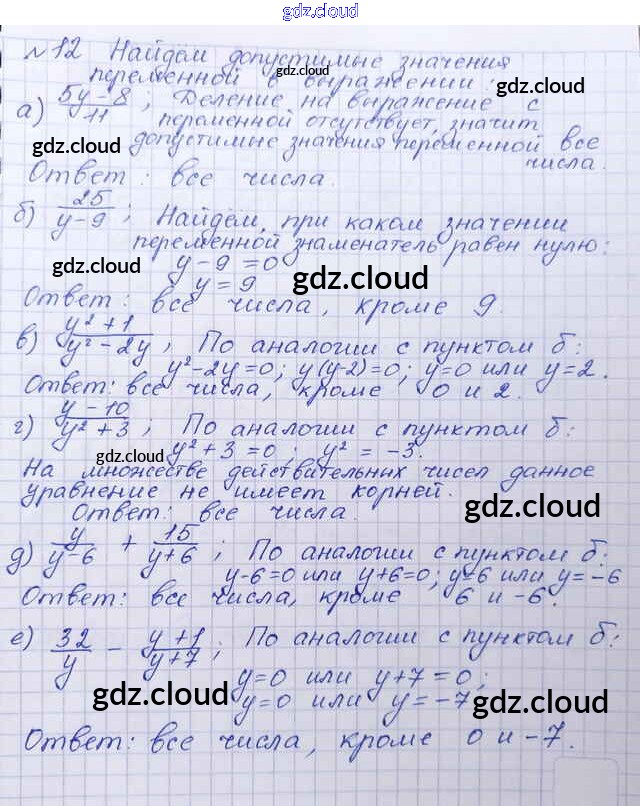 gdz.cloud
№12 Найдем допустимые значения
переменной в выражении: gdz.cloud
а) (5y-8)/11; Деление на выражение с
переменной отсутствует, значит
gdz.cloud допустимые значения переменной все
числа. gdz.cloud
Ответ: все числа.
б) 25/(y-9); Найдём, при каком значении
переменной знаменатель равен нулю:
gdz.cloud y-9=0 gdz.cloud
y=9
Ответ: все числа, кроме 9.
в) (y²+1)/(y²-2y); По аналогии с пунктом б:
y²-2y=0; y(y-2)=0; y=0 или y=2.
Ответ: все числа, кроме 0 и 2.
г) (y-10)/(y²+3); По аналогии с пунктом б:
gdz.cloud y²+3=0; y²=-3.
На множестве действительных чисел данное
уравнение не имеет корней.
Ответ: все числа. gdz.cloud
д) y/(y-6) + 15/(y+6); По аналогии с пунктом б:
y-6=0 или y+6=0; y=6 или y=-6
Ответ: все числа, кроме 6 и -6.
е) 32/y - (y+1)/(y+7); По аналогии с пунктом б:
y=0 или y+7=0;
gdz.cloud y=0 или y=-7 gdz.cloud
Ответ: все числа, кроме 0 и -7.